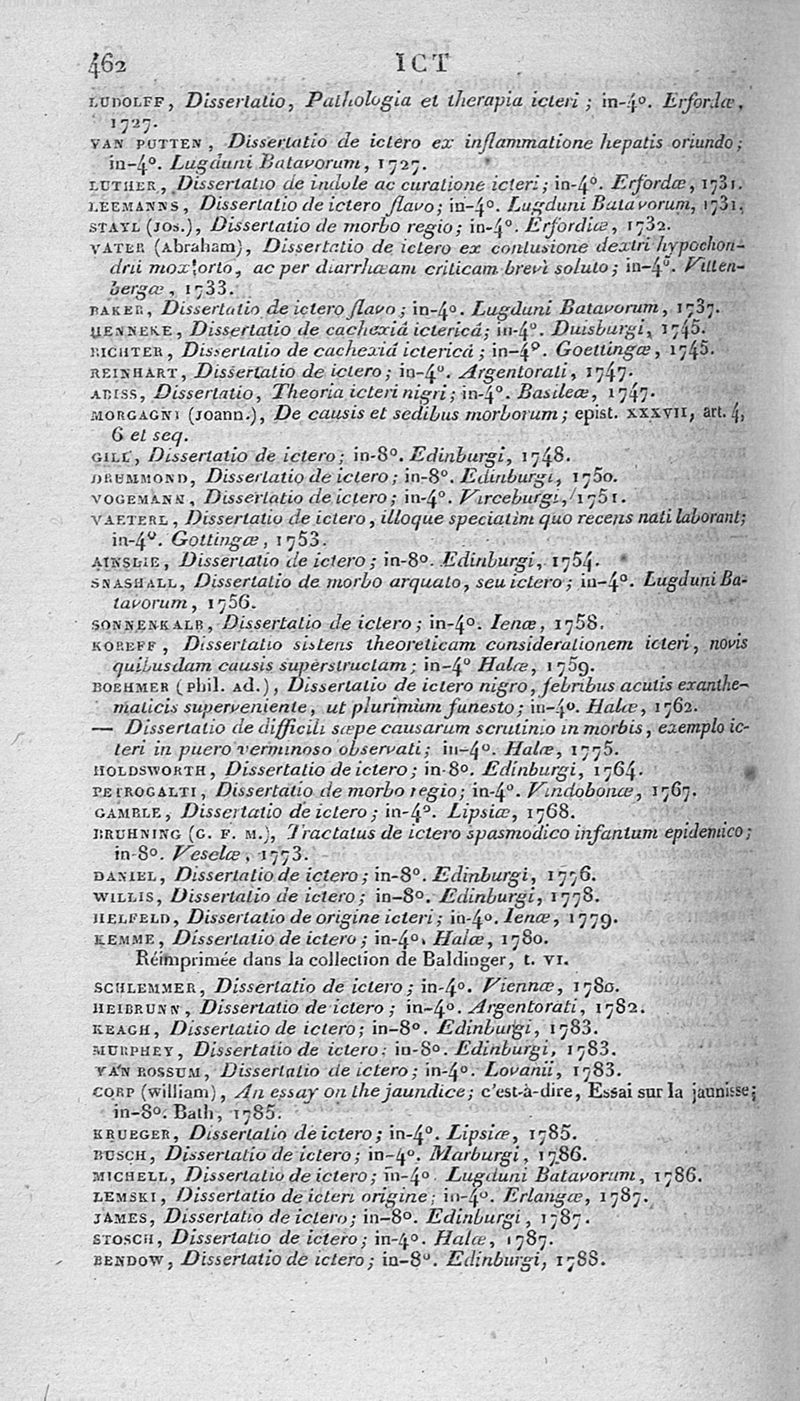 462 ICT
LUDOLFF, Dissertatio, Pathologia et therapia icteri; in-4°. Erfordæ,
1727.
VAN PUTTEN, Dissertatio de ictero ex inflammatione hepatis oriundo;
in-4°. Lugduni Batavorum, 1727.
LUTHER, Dissertatio de indole ac curatione icteri; in-4°. Erfordæ, 1731.
LEEMANNS, Dissertatio de ictero flavo; in-4°. Lugduni Batavorum, 1731.
STAYL (Jos.), Dissertatio de morbo regio; in-4°. Erfordiæ, 1732.
VATER (Abraham), Dissertatio de ictero ex contusione dextri hypochon-
drii mox orto, ac per diarrhœam criticam brevi soluto; in-4°. Vitten-
bergæ, 1733.
BAKER, Dissertatio de ictero flavo; in-4°. Lugduni Batavorum, 1737.
HENNEKE, Dissertatio de cachexiâ ictericâ; in-4°. Duisburgi, 1745.
RICHTER, Dissertatio de cachexiâ ictericâ; in-4°. Goettingæ, 1745.
REINHART, Dissertatio de ictero; in-4°. Argentorati, 1747.
ABISS, Dissertatio, Theoria icteri nigri; in-4°. Basileæ, 1747.
MORGAGNI (Joann.), De causis et sedibus morborum; epist. XXXVII, art. 4,
6 et seq.
GILL, Dissertatio de ictero; in-8°. Edinburgi, 1748.
DRUMMOND, Dissertatio de ictero; in-8°. Edinburgi, 1750.
VOGEMANN, Dissertatio de ictero; in-4°. Virceburgi, 1751.
VAETERL, Dissertatio de ictero, illoque speciatim quo recens nati laborant;
in-4°. Gottingæ, 1753.
AINSLIE, Dissertatio de ictero; in-8°. Edinburgi, 1754.
SNASHALL, Dissertatio de morbo arquato, seu ictero; in-4°. Lugduni Ba-
tavorum, 1756.
SONNENKALB, Dissertatio de ictero; in-4°. Ienæ, 1758.
KOREFF, Dissertatio sistens theoreticam considerationem icteri, novis
quibusdam causis superstructam; in-4° Halæ, 1759.
BOEHMER (Phil. Ad.), Dissertatio de ictero nigro, febribus acutis exanthe-
maticis superveniente, ut plurimùm funesto; in-4°. Halæ, 1762.
— Dissertatio de difficili sæpe causarum scrutinio in morbis, exemplo ic-
teri in puero verminoso observati; in-4°. Halæ, 1775.
HOLDSWORTH, Dissertatio de ictero; in-8°. Edinburgi, 1764.
PETROGALTI, Dissertatio de morbo regio; in-4°. Vindobonæ, 1767.
GAMBLE, Dissertatio de ictero; in-4°. Lipsiæ, 1768.
BRUHNING (G. F. M.), Tractatus de ictero spasmodico infantum epidemico;
in-8°. Veselæ, 1773.
DANIEL, Dissertatio de ictero; in-8°. Edinburgi, 1776.
WILLIS, Dissertatio de ictero; in-8°. Edinburgi, 1778.
HELFELD, Dissertatio de origine icteri; in-4°. Ienæ, 1779.
KEMME, Dissertatio de ictero; in-4°. Halæ, 1780.
Réimprimée dans la collection de Baldinger, t. VI.
SCHLEMMER, Dissertatio de ictero; in-4°. Viennæ, 1780.
HEIBRUNN, Dissertatio de ictero; in-4°. Argentorati, 1782.
KEAGH, Dissertatio de ictero; in-8°. Edinburgi, 1783.
MURPHEY, Dissertatio de ictero; in-8°. Edinburgi, 1783.
VAN ROSSUM, Dissertatio de ictero; in-4°. Lovanii, 1783.
CORP (William), An essay on the jaundice; c'est-à-dire, Essai sur la jaunisse;
in-8°. Bath, 1785.
KRUEGER, Dissertatio de ictero; in-4°. Lipsiæ, 1785.
BUSCH, Dissertatio de ictero; in-4°. Marburgi, 1786.
MICHELL, Dissertatio de ictero; in-4°. Lugduni Batavorum, 1786.
LEMSKI, Dissertatio de icteri origine; in-4°. Erlangæ, 1787.
JAMES, Dissertatio de ictero; in-8°. Edinburgi, 1787.
STOSCH, Dissertatio de ictero; in-4°. Halæ, 1787.
BENDOW, Dissertatio de ictero; in-8°. Edinburgi, 1788.